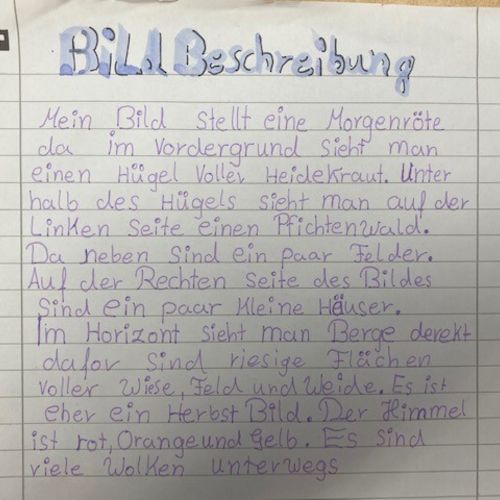 Bild Beschreibung
Mein Bild stellt eine Morgenröte
da im Vordergrund sieht man
einen Hügel voller Heidekraut. Unter
halb des Hügels sieht man auf der
Linken Seite einen Pfichtenwald.
Da neben sind ein paar Felder.
Auf der Rechten Seite des Bildes
sind ein paar kleine Häuser.
Im Horizont sieht man Berge derekt
dafor sind riesige Flächen
voller Wiese, Feld und Weide. Es ist
eher ein Herbst Bild. Der Himmel
ist rot, Orange und Gelb. Es sind
viele Wolken unterwegs